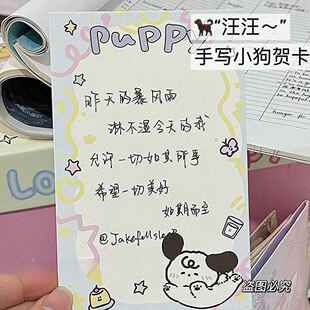 "汪汪～"
手写小狗贺卡
PUPPY
昨天的暴风雨
淋不湿今天的我
允许一切如其所是
希望一切美好
如期而至
盗图必究